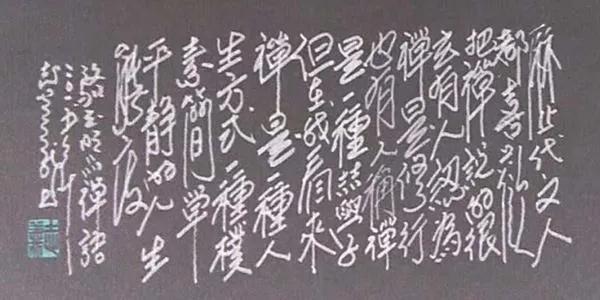 歷代文人
都喜歡
把禪説的很
玄有人認為
禪是修行
也有人稱禪
是一種哲學
但在我看來
禪是一種人
生方式一種樸
素簡單
平靜的人生
態度
禪語